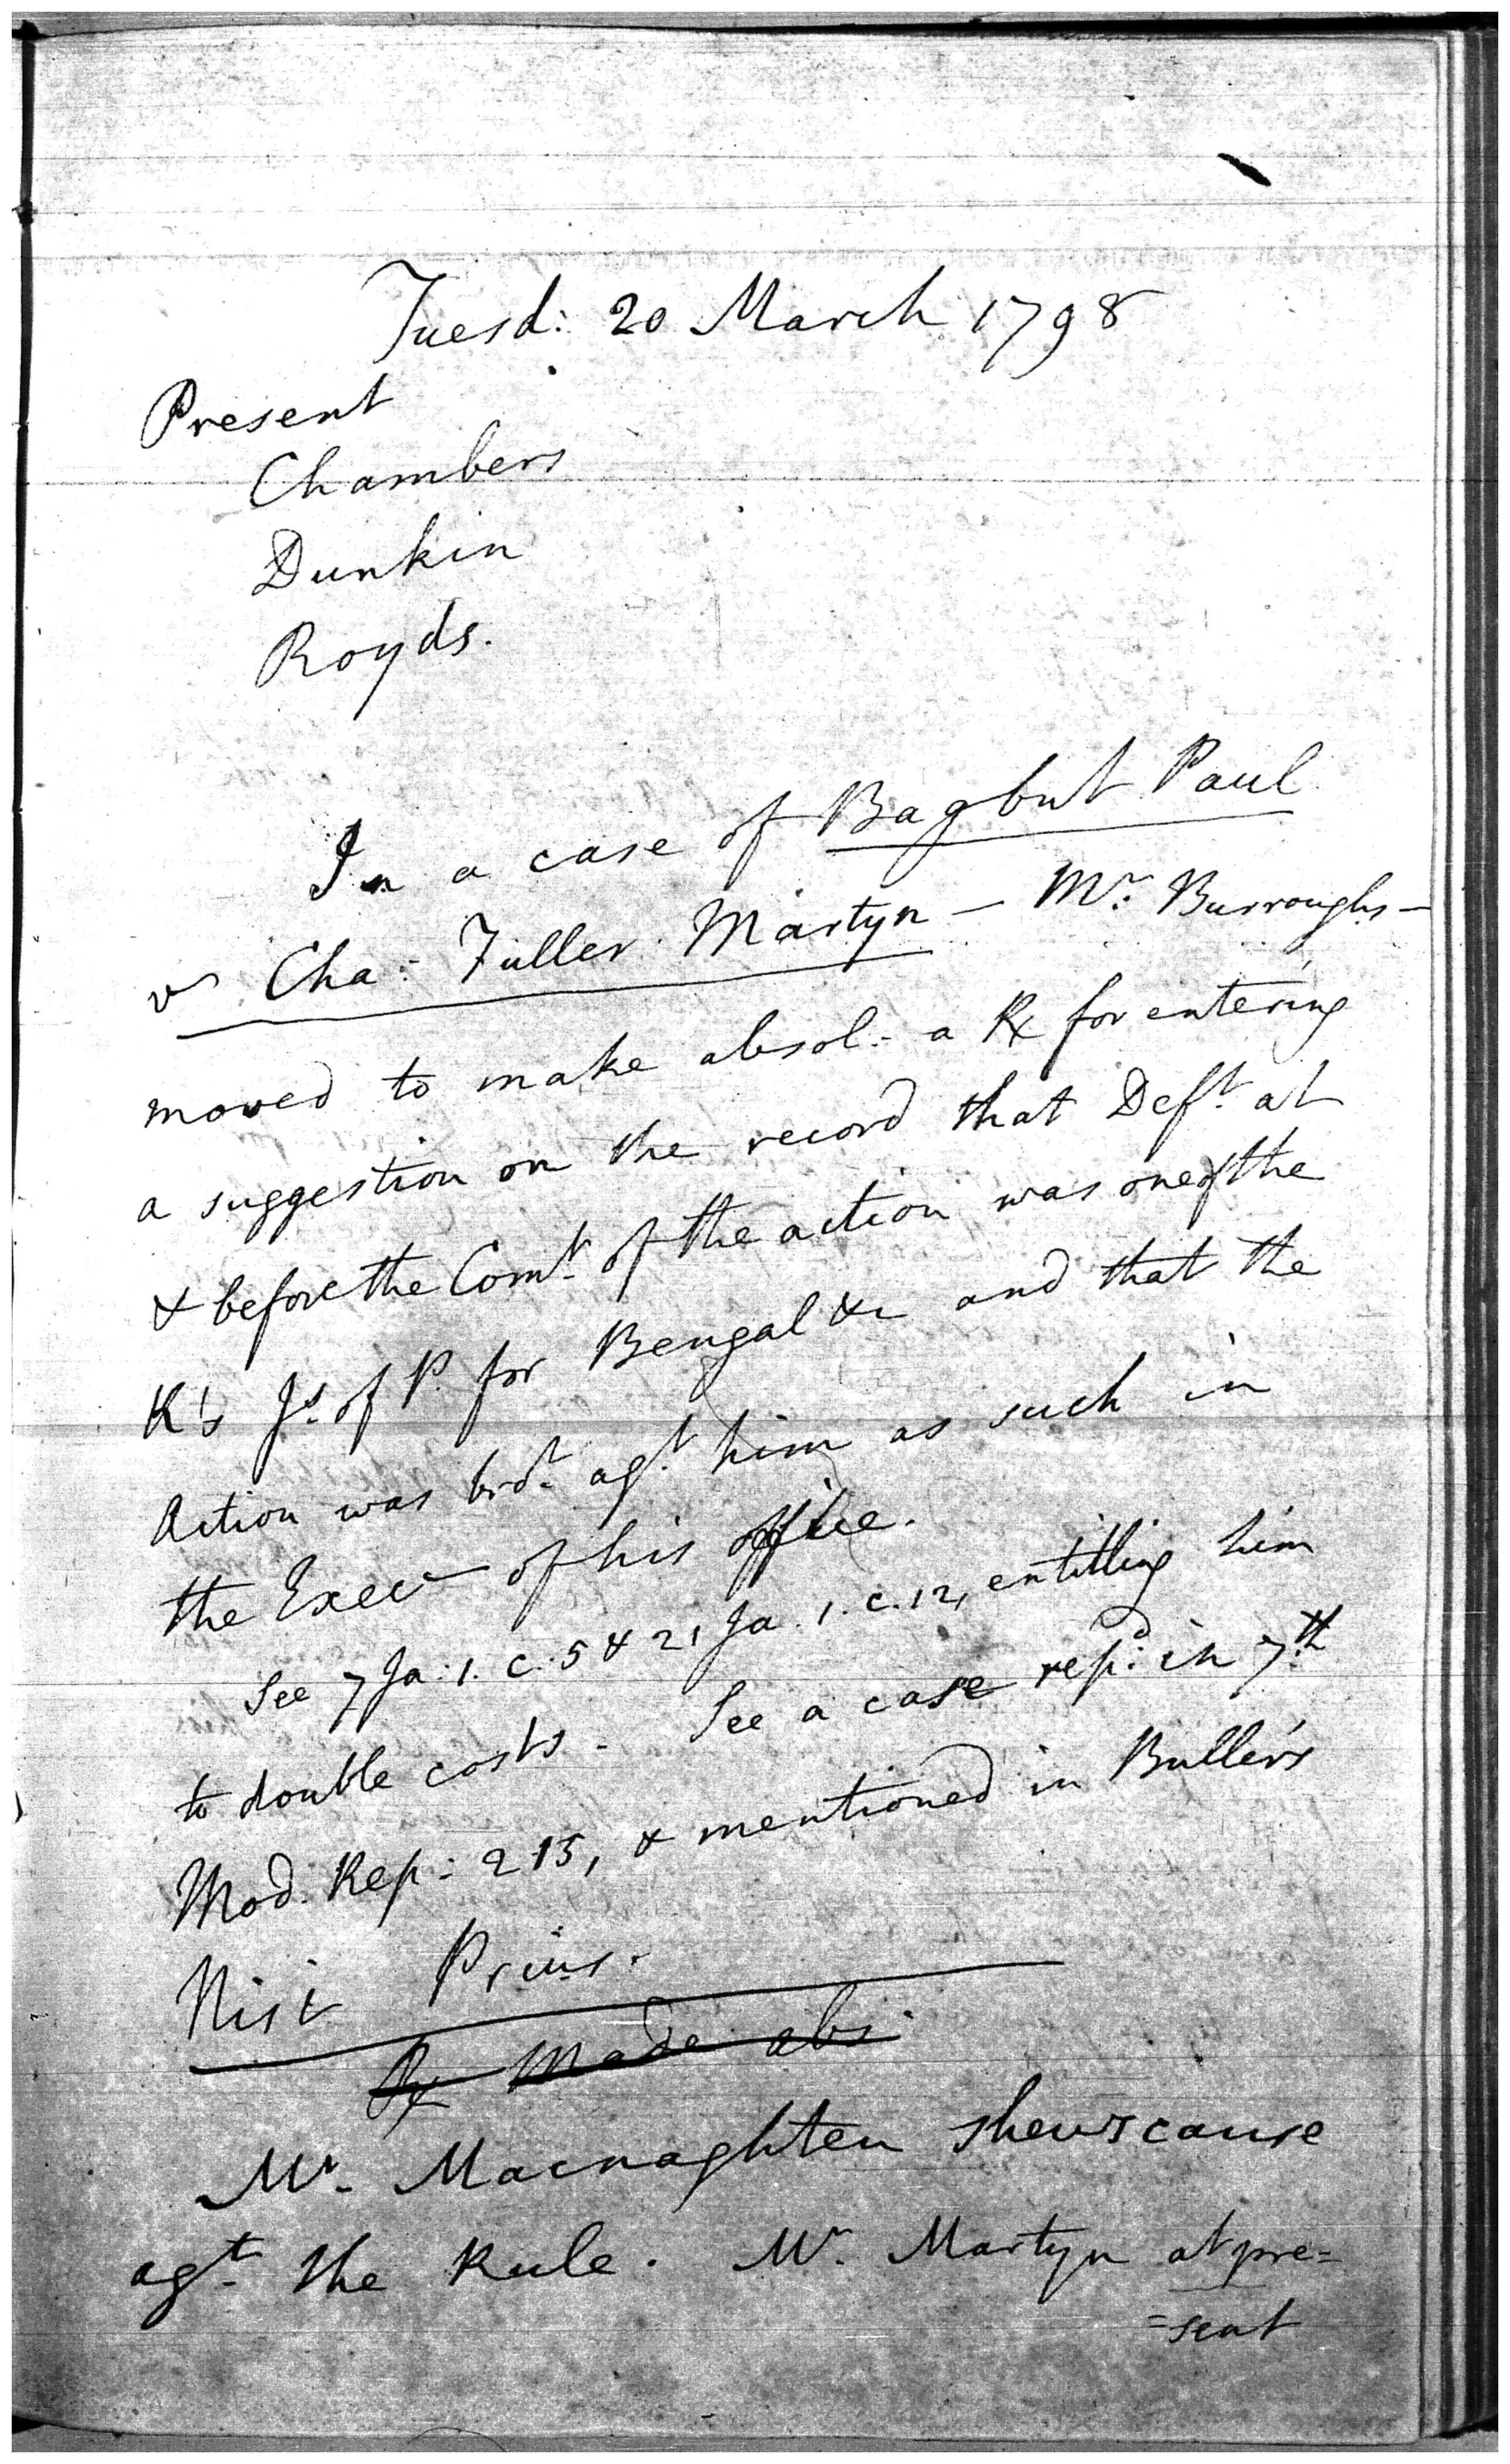 Tuesd: 20 March 1798
Present
Chambers
Dunkin
Royds.
In a case of Bagbut Paul
vs Cha: Fuller Martyn — Mr. Burroughs —
moved to make absol: a Rx for entering
a suggestion on the record that Deft. at
& before the Comt. of the action was one of the
K's Js. of P. for Bengal &c and that the
Action was brot. agt. him as such in
the Execn of his office.
See 7 Ja: 1. c: 5 & 21 Ja. 1. c. 12, entitling him
to double costs - See a case repd: in 7th
Mod. Rep: 215, & mentioned in Buller's
Nisi Prius.
Rx Made abs:
Mr. Macnaghten shews cause
agt. the Rule. Mr. Martyn at pre=
=sent